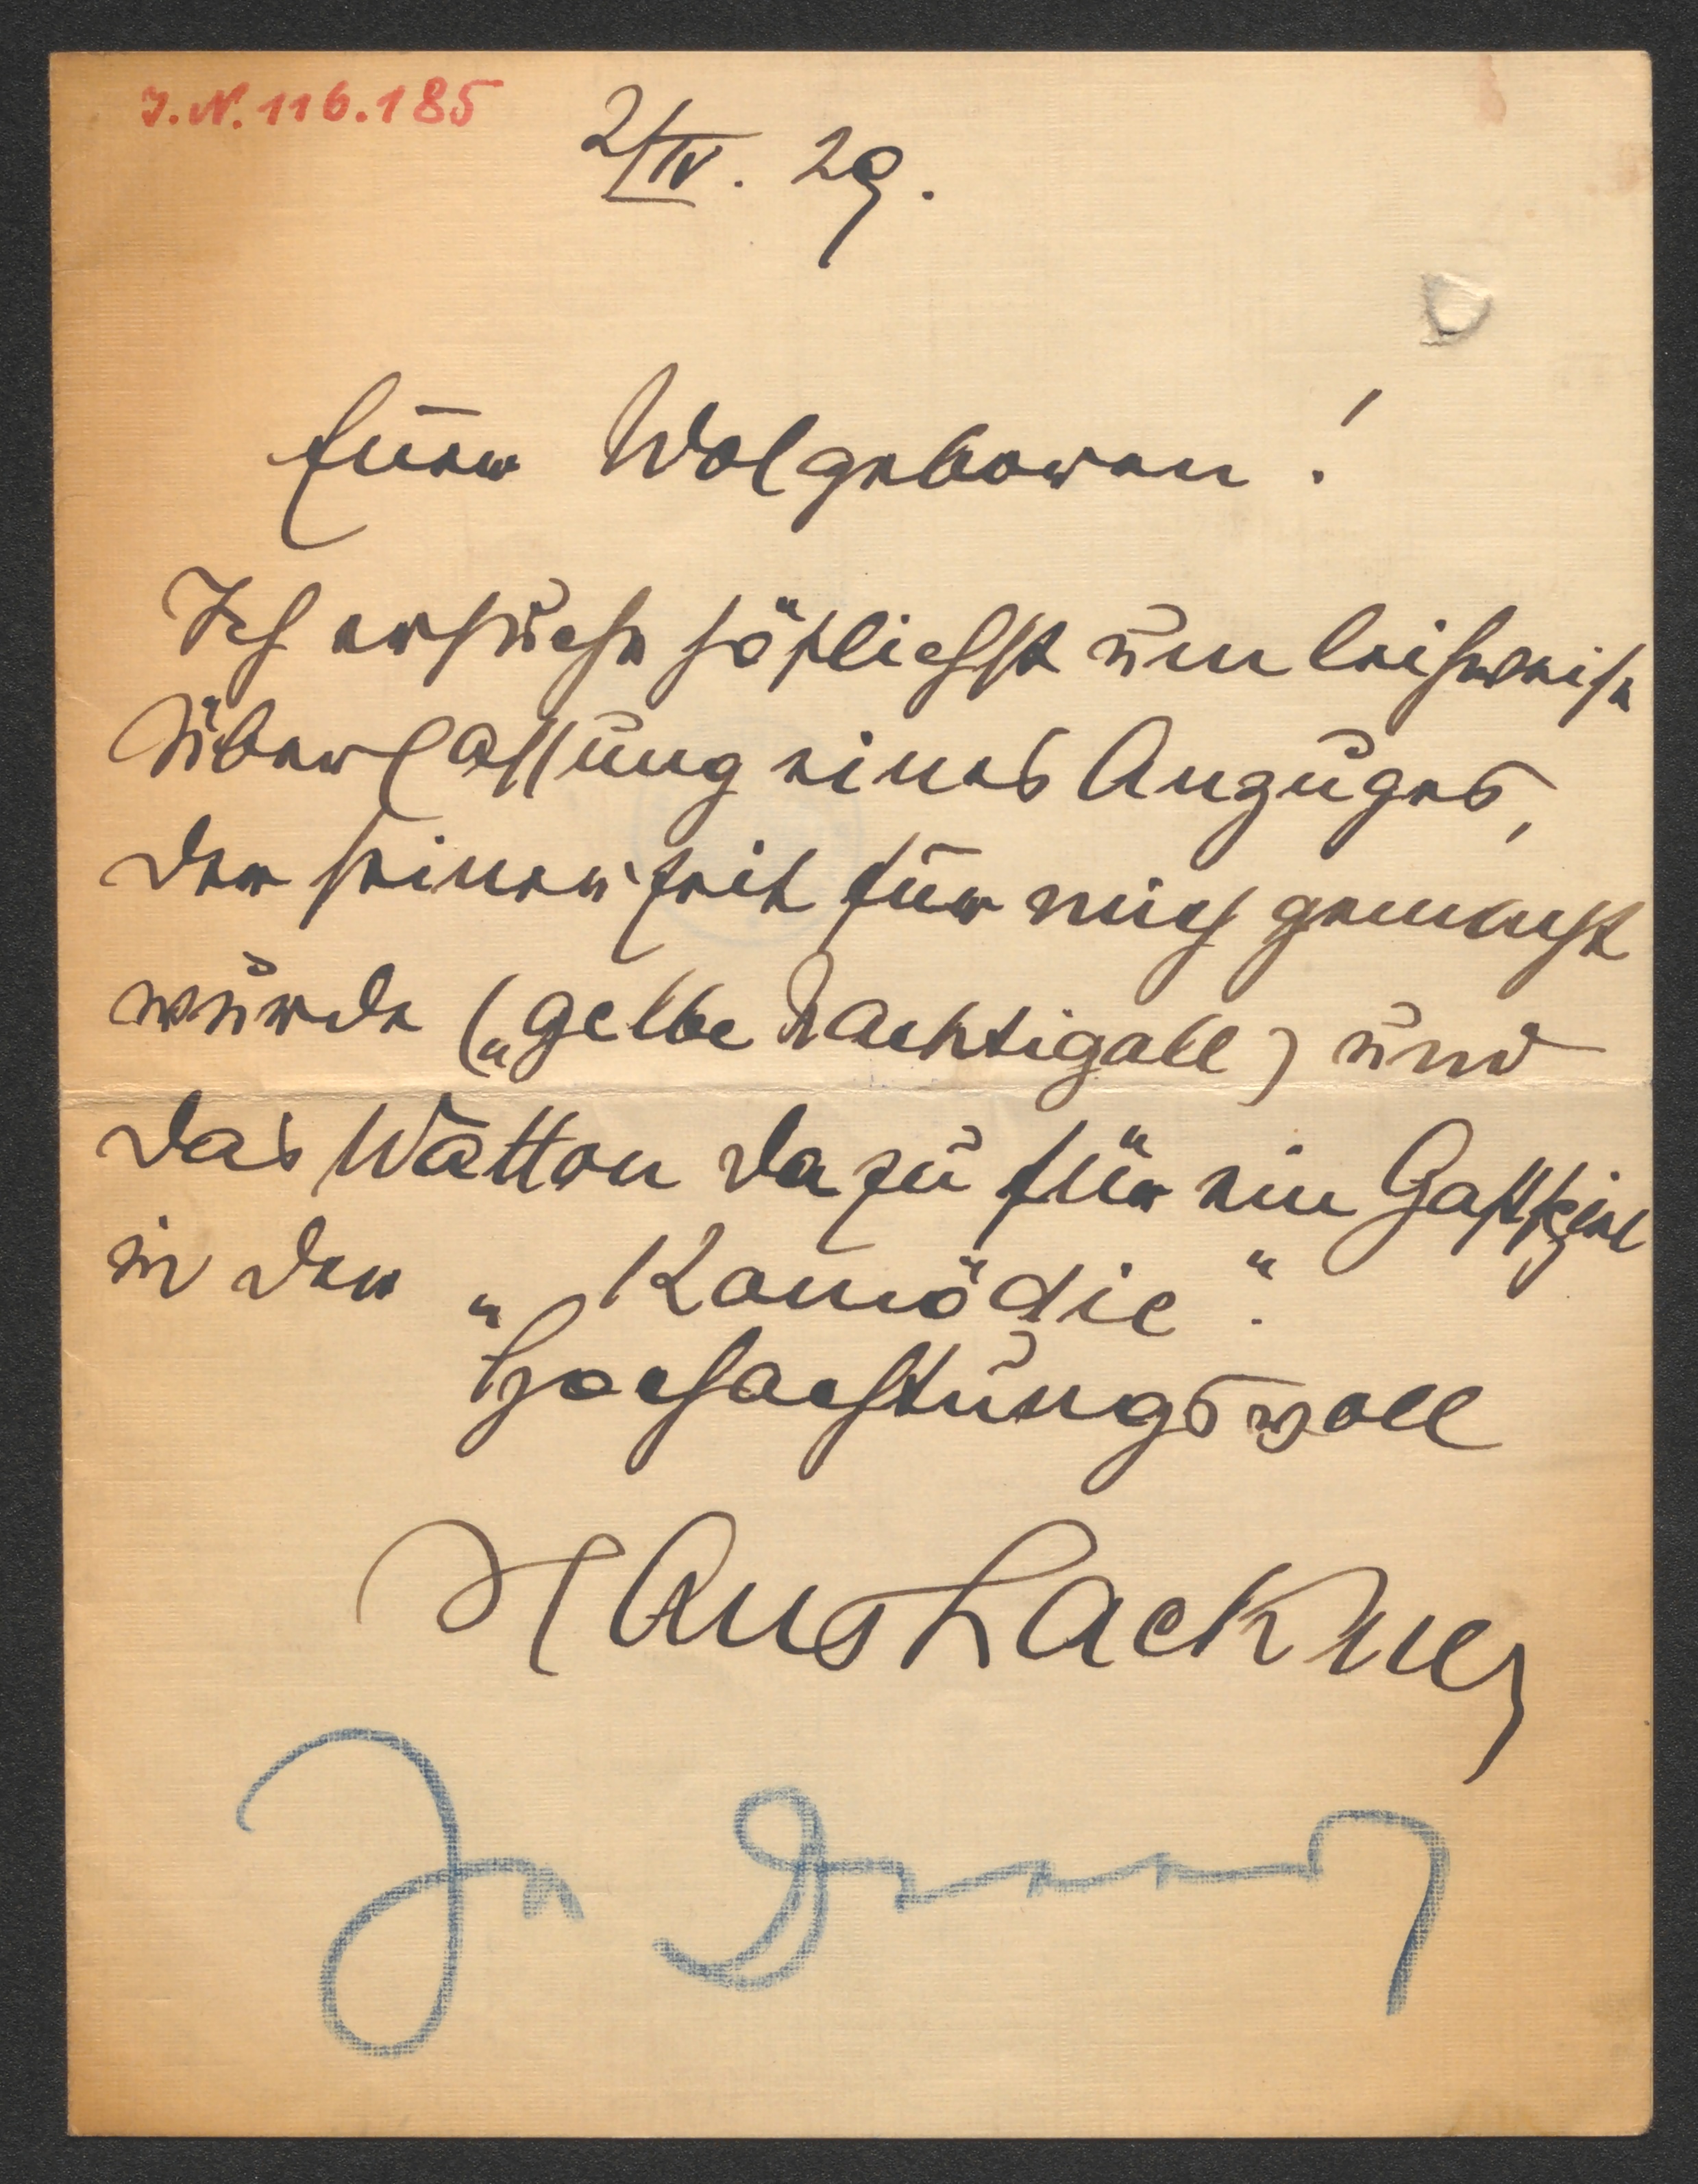 J.N. 116.185
2/IV. 29.
Euer Wolgeboren!
Ich ersuche höflichst um leihweise
Überlassung eines Anzuges,
der seinerzeit für mich gemacht
wurde („gelbe Nachtigall) und
das Watton dazu für ein Gastspiel
in der „Komödie“.
Hochachtungsvoll
Hans Lackner
Ja